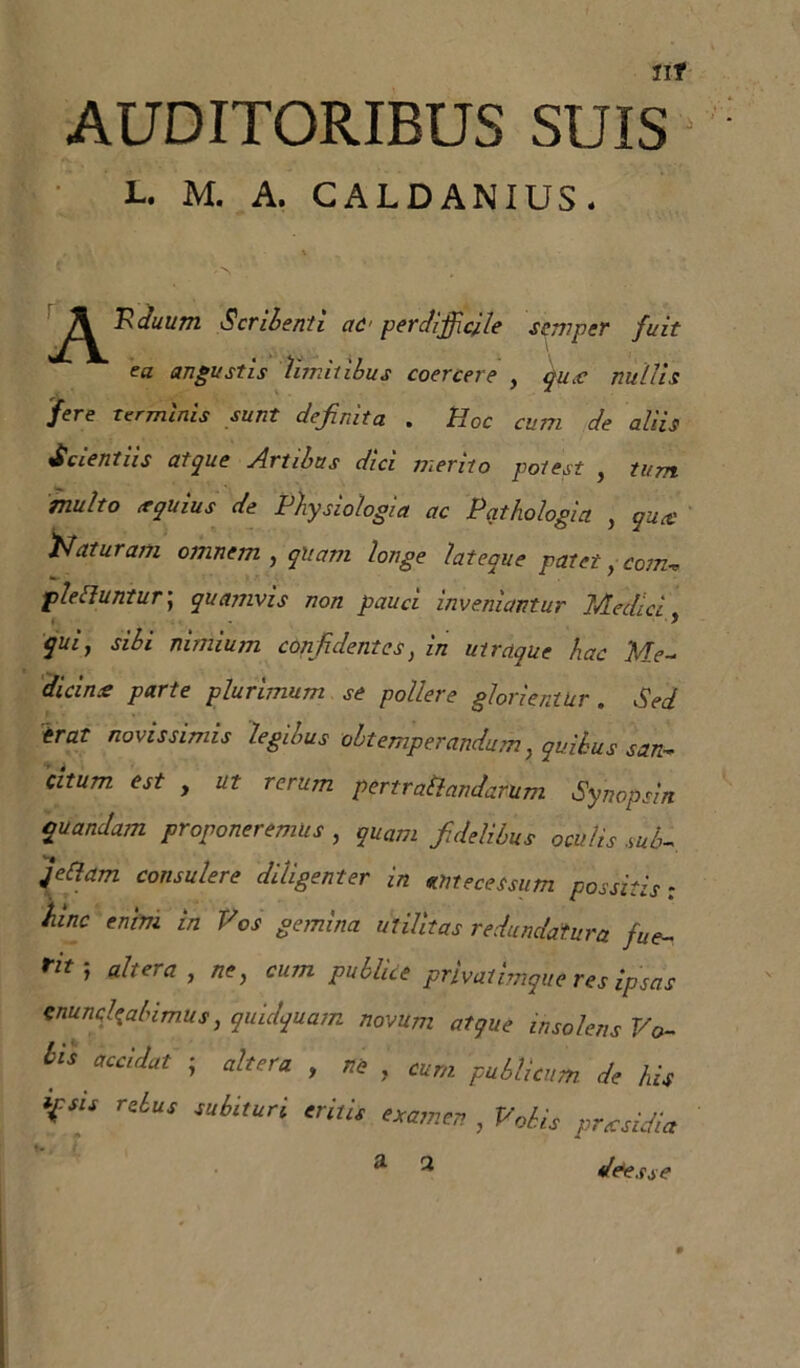 III
AUDITORIBUS SUIS
L. M. A. CALDANIUS.
ARduum Scribenti ac perdifficile semper fuit
ea angustis limitibus coercere , quæ nullis
fere terminis sunt definita . Hoc cum de aliis
Scientiis atque Artibus dici merito potest , tum
multo æquius de Physiologia ac Pathologia , quæ
Naturam omnem , quam longe lateque patet , com-
plectuntur; quamvis non pauci inveniantur Medici ,
qui, sibi nimium confidentes, in utraque hac Me-
dicinæ parte plurimum se pollere glorientur . Sed
erat novissimis legibus obtemperandum, quibus san-
citum est , ut rerum pertractandarum Synopsin
quandam proponeremus , quam fidelibus oculis sub-
jectam consulere diligenter in antecessum possitis :
hinc enim in Vos gemina utilitas redundatura fue-
rit ; altera , ne, cum publice privatimque res ipsas
enucleabimus, quidquam novum atque insolens Vo-
bis accidat ; altera , ne , cum publicum de his
ipsis rebus subituri eritis examen , Vobis præsidia
a 2 deesse